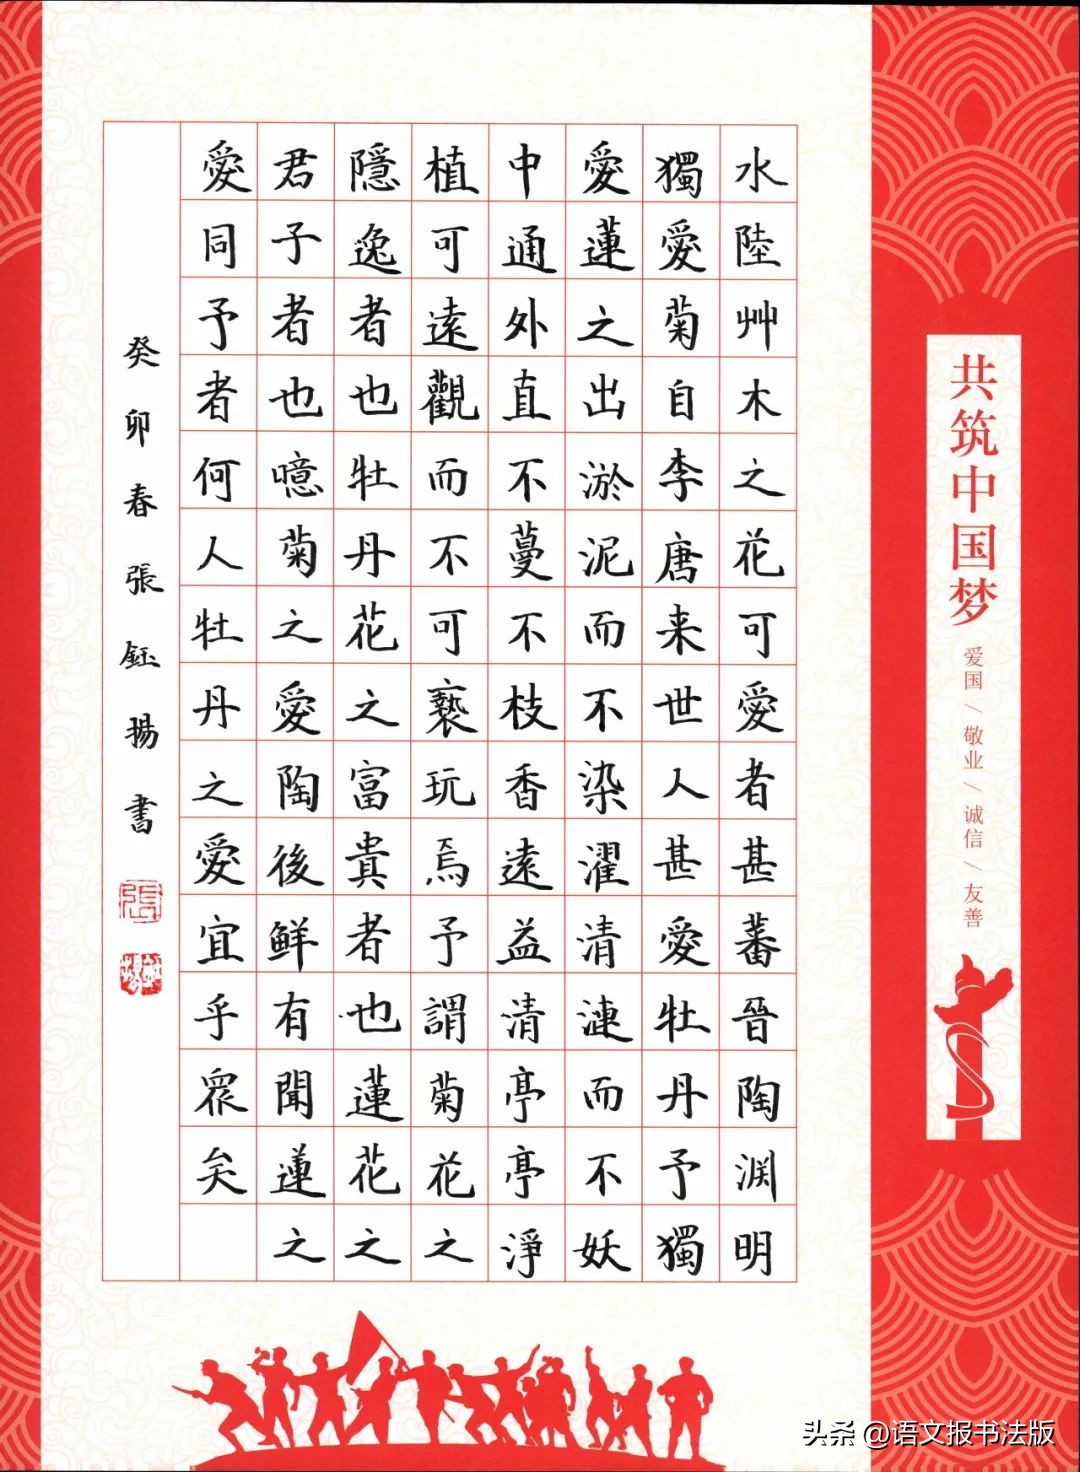 共筑中国梦
爱国/敬业/诚信/友善
水陸艸木之花可愛者甚蕃晉陶渊明
獨愛菊自李唐来世人甚愛牡丹予獨
愛蓮之出淤泥而不染濯清漣而不妖
中通外直不蔓不枝香遠益清亭亭淨
植可遠觀而不可褻玩焉予謂菊花之
隱逸者也牡丹花之富貴者也蓮花之
君子者也噫菊之愛陶後鮮有聞蓮之
愛同予者何人牡丹之愛宜乎眾矣
癸卯春張鈺揚書
張
头条@语文报书法版